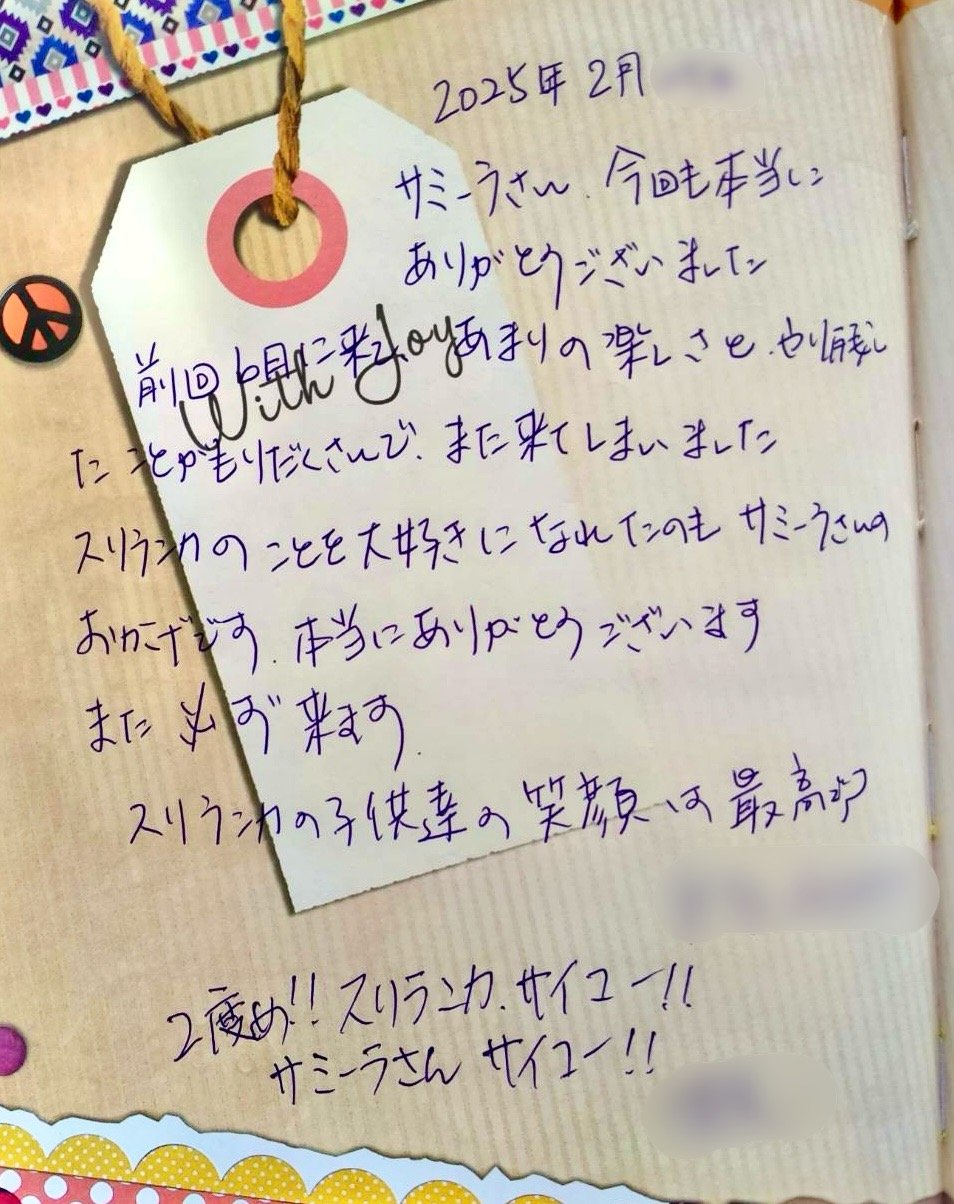 2025年2月
サミーラさん、今回も本当に
ありがとうございました
With Joy
前回6月に来て、あまりの楽しさと、やり残し
たことがもりだくさんで、また来てしまいました
スリランカのことを大好きになれたのもサミーラさんの
おかげです。本当にありがとうございます
また必ず来ます。
スリランカの子供達の笑顔は最高です
2度め!! スリランカ、サイコー!!
サミーラさん サイコー!!